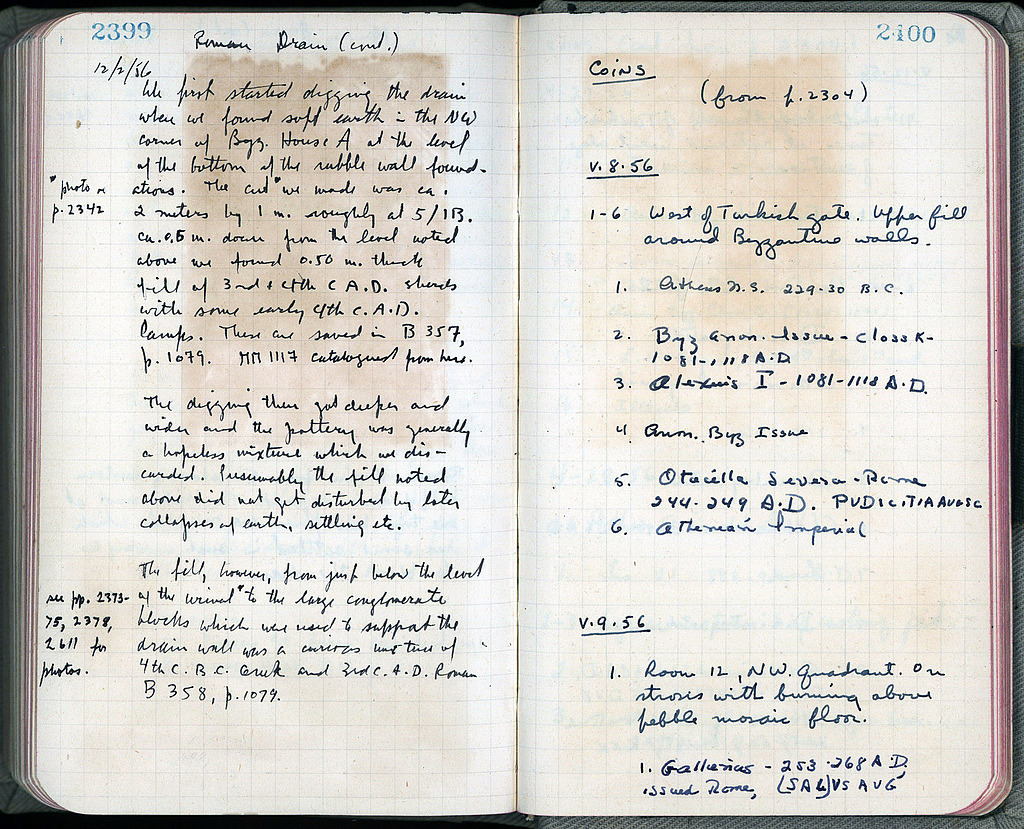 2399
Roman Drain (cont.)
12/2/56
We first started digging the drain
when we found soft earth in the NW
corner of Byz. House A at the level
of the bottom of the rubble wall found-
ations. The cut* we made was ca.
*photo on
p. 2342
2 meters by 1 m. roughly at 5/1B.
ca. 0.5 m. down from the level noted
above we found 0.50 m. thick
fill of 3rd & 4th C A.D. sherds
with some early 4th c. A.D.
lamps. These are saved in B 357,
p. 1079. MM 1117 catalogued from here.
The digging then got deeper and
wider and the pottery was generally
a hopeless mixture which we dis-
carded. Presumably the fill noted
above did not get disturbed by later
collapses of earth, settling etc.
The fill, however, from just below the level
of the * to the large conglomerate
see pp. 2373-
75, 2378,
2611 for
photos.
blocks which was used to support the
drain wall was a curious mixture of
4th C. B.C. Greek and 3rd C. A.D. Roman
B 358, p. 1079.
2400
Coins
(from p. 2304)
V.8.56
1-6 West of Turkish gate. Upper fill
around Byzantine walls.
1. Athens N.S. 229-30 B.C.
2. Byz Anon. Issue - Class K-
1081-1118 A.D
3. Alexius I - 1081-1118 A.D.
4 Anon. Byz Issue
5. Otacilla Severa - Rome
244-249 A.D. PUDICITIA AUGSC
6. Athenian Imperial
V.9.56
1. Room 12, NW. Quadrant. On
strosis with burning above
pebble mosaic floor.
1. Gallienus - 253-268 A.D.
issued Rome, (SAL)VS AVG